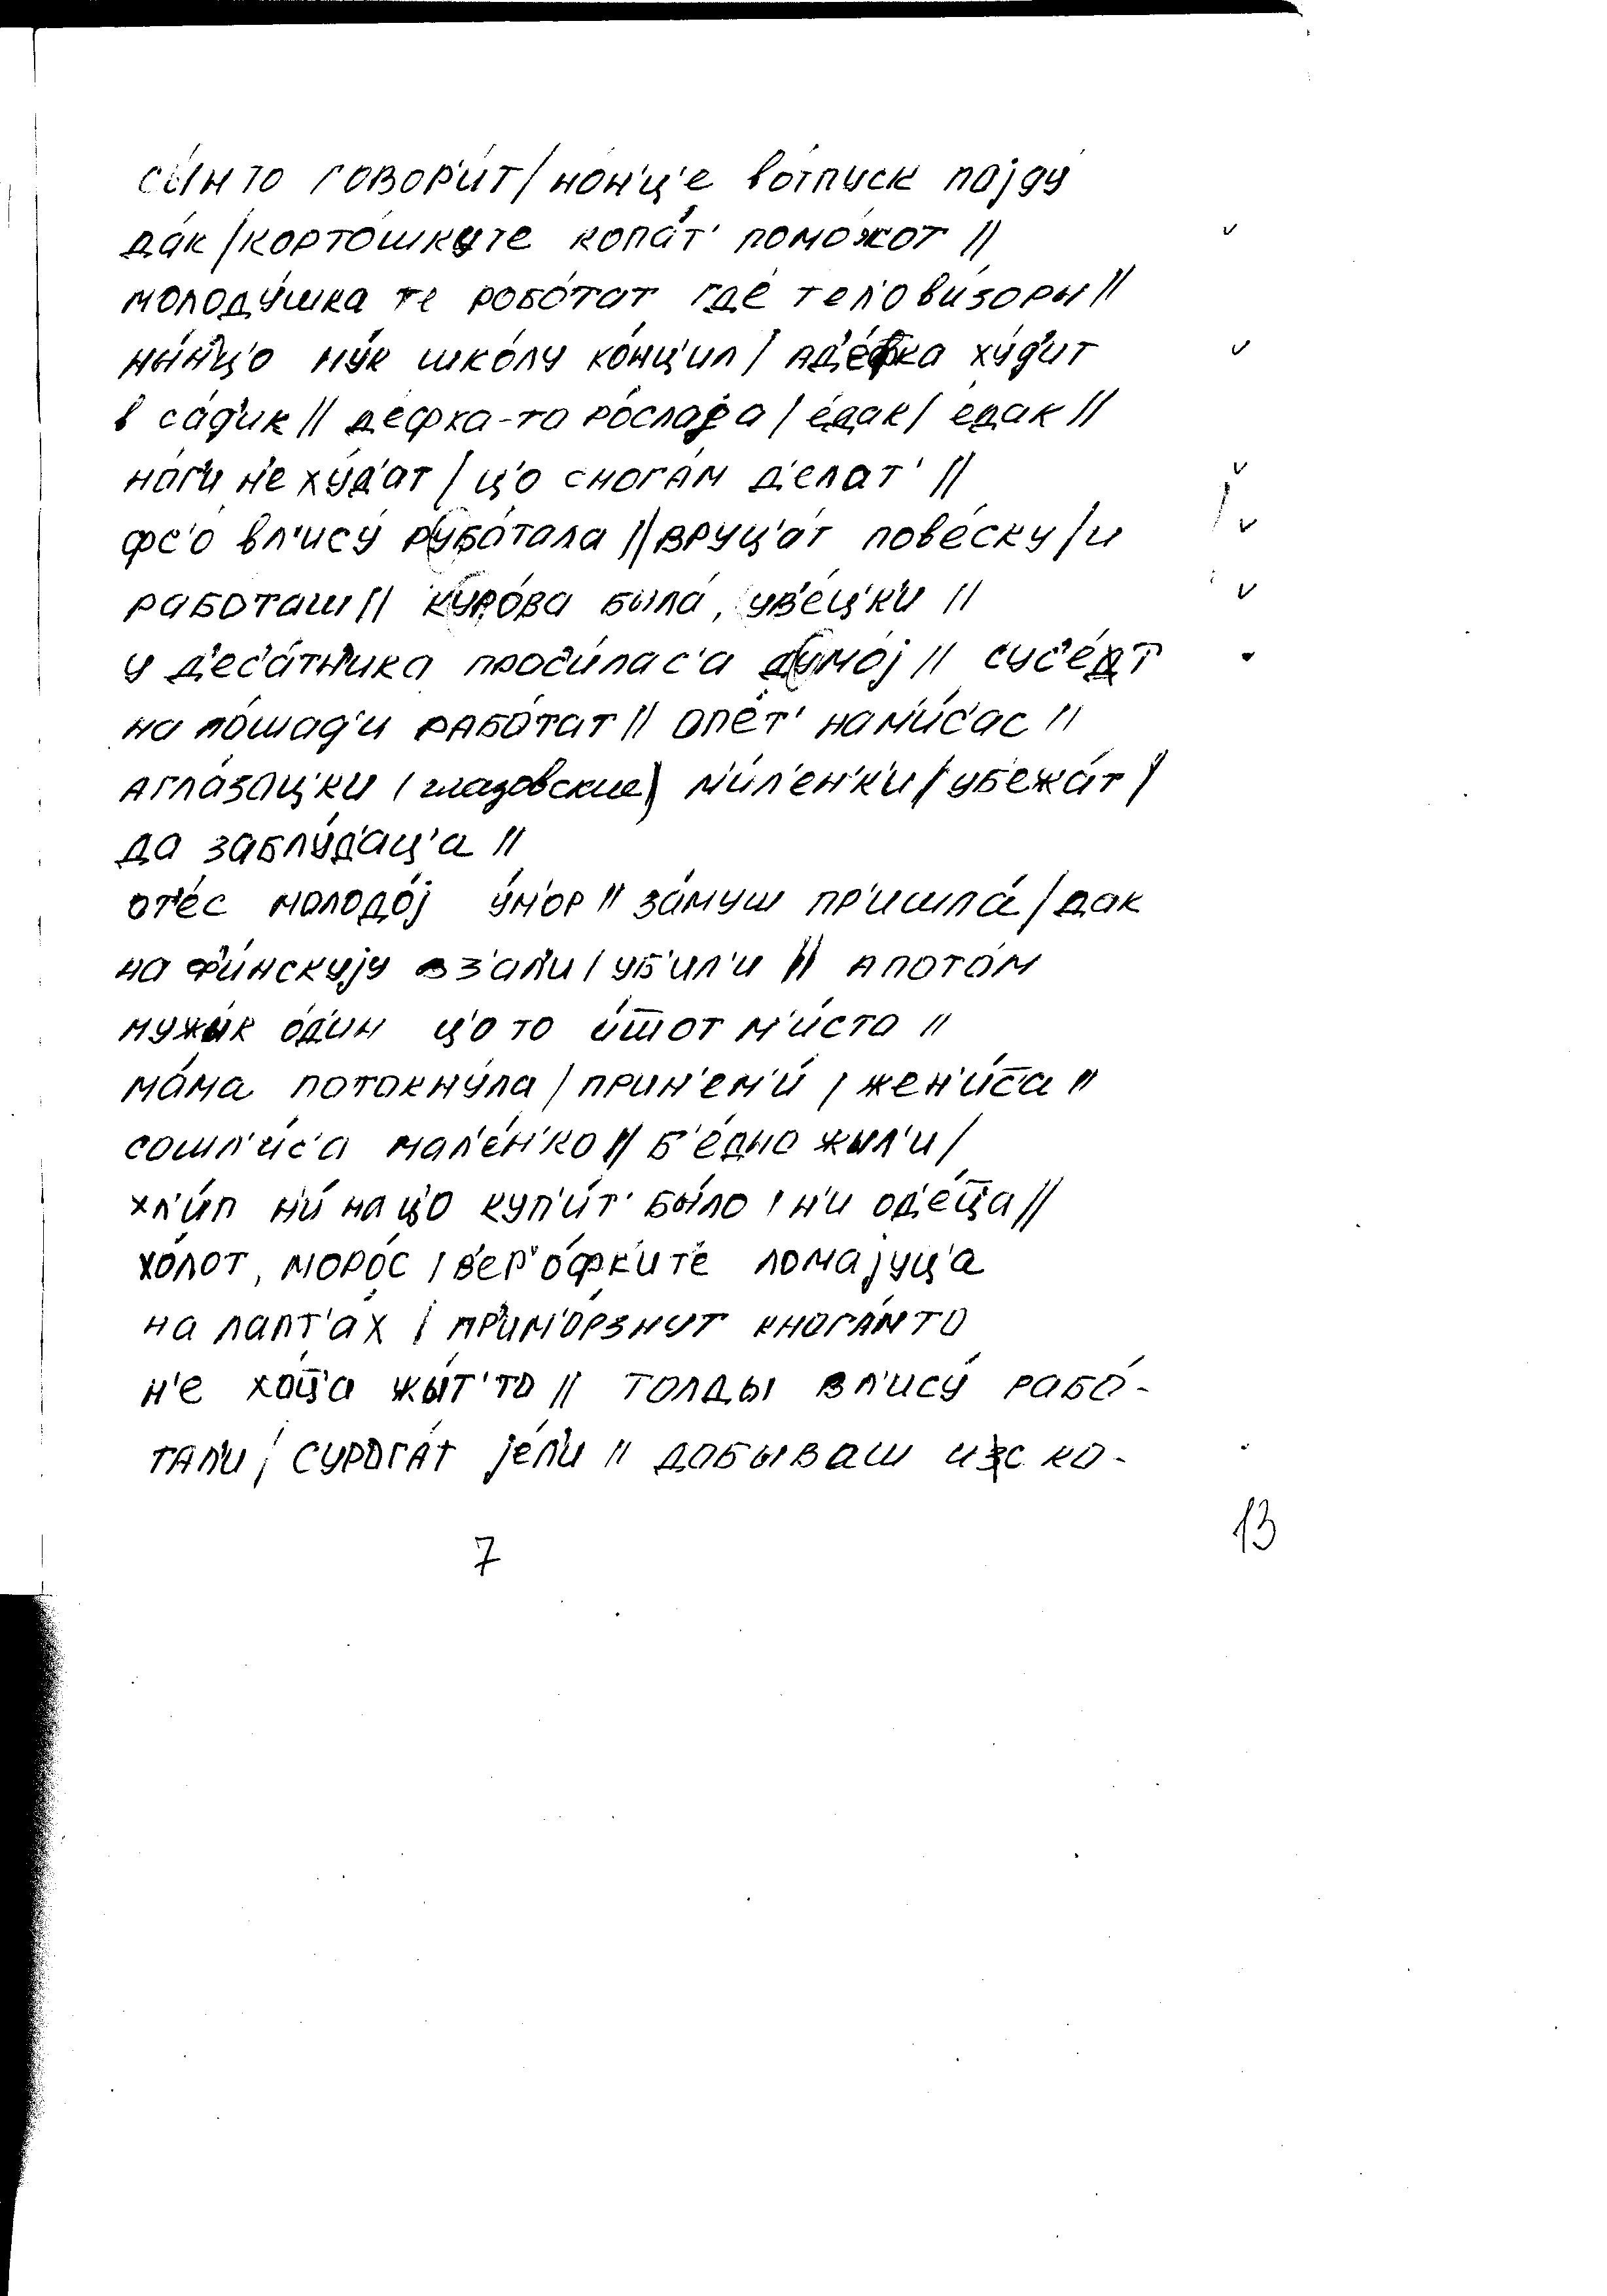 сы́н то говор'и́т / но́н'ц'е во́тпуск пojду́
да́к / корто́шкуте копа́т' помо́жот //
молоду́шка те робо́тат где́ тел'ови́зоры //
ны́н'ц'о ну́к шко́лу ко́нц'ил / ад'е́фка ху́д'ит
в са́д'ик // де́фка-то ро́слаjа / е́дак / е́дак //
но́г'и н'е ху́д'ат / ц'о с нога́м д'е́лат' //
фс'о́ вл'ису́ рубо́тала // вруц'а́т пове́ску / и
работаш // куро́ва была́, ув'е́ц'к'и //
у д'ес'а́тн'ика проси́лас'а думо́j // сус'е́дт
на ло́шад'и рабо́тат // опе́т' нам'и́с'ас //
агла́зоцк'и (глазовские) м'и́л'ен'к'и / убежа́т /
да заблу́д'ац'а //
от'е́с молодо́j у́м'ор // за́муш пр'ишла́ / дак
на ф'и́нскуjу вз'а́л'и / уб'и́л'и // а пото́м
мужы́к о́д'ин ц'о то и́тот м'и́сто //
ма́ма потокну́ла / прин'ем'и́ / жен'и́са //
сошл'и́с'а мал'е́н'ко // б'е́дно жы́л'и /
хл'и́п н'и́ на ц'о куп'и́т' бы́ло / н'и од'е́ц'а //
хо́лот, моро́с / в'ер'о́фк'ит'е лома́jуц'а
на лапт'а́х / пр'им'о́рзнут к нога́м то
н'е хо́ц'а жы́т' то // толды́ вл'ису́ рабо́-
тал'и / сурога́т jе́л'и // добываш из ко-
7
13